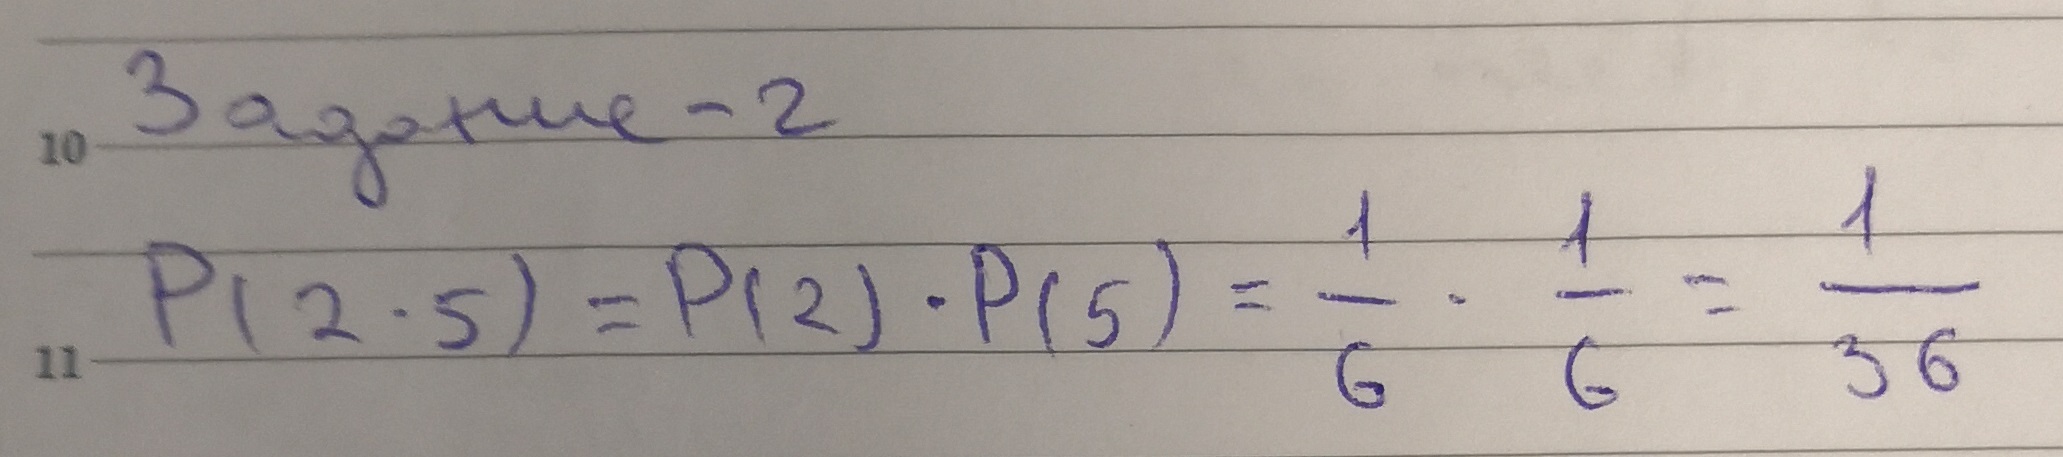 10 Задание - 2
11 P(2·5) = P(2)·P(5) = 1/6 · 1/6 = 1/36